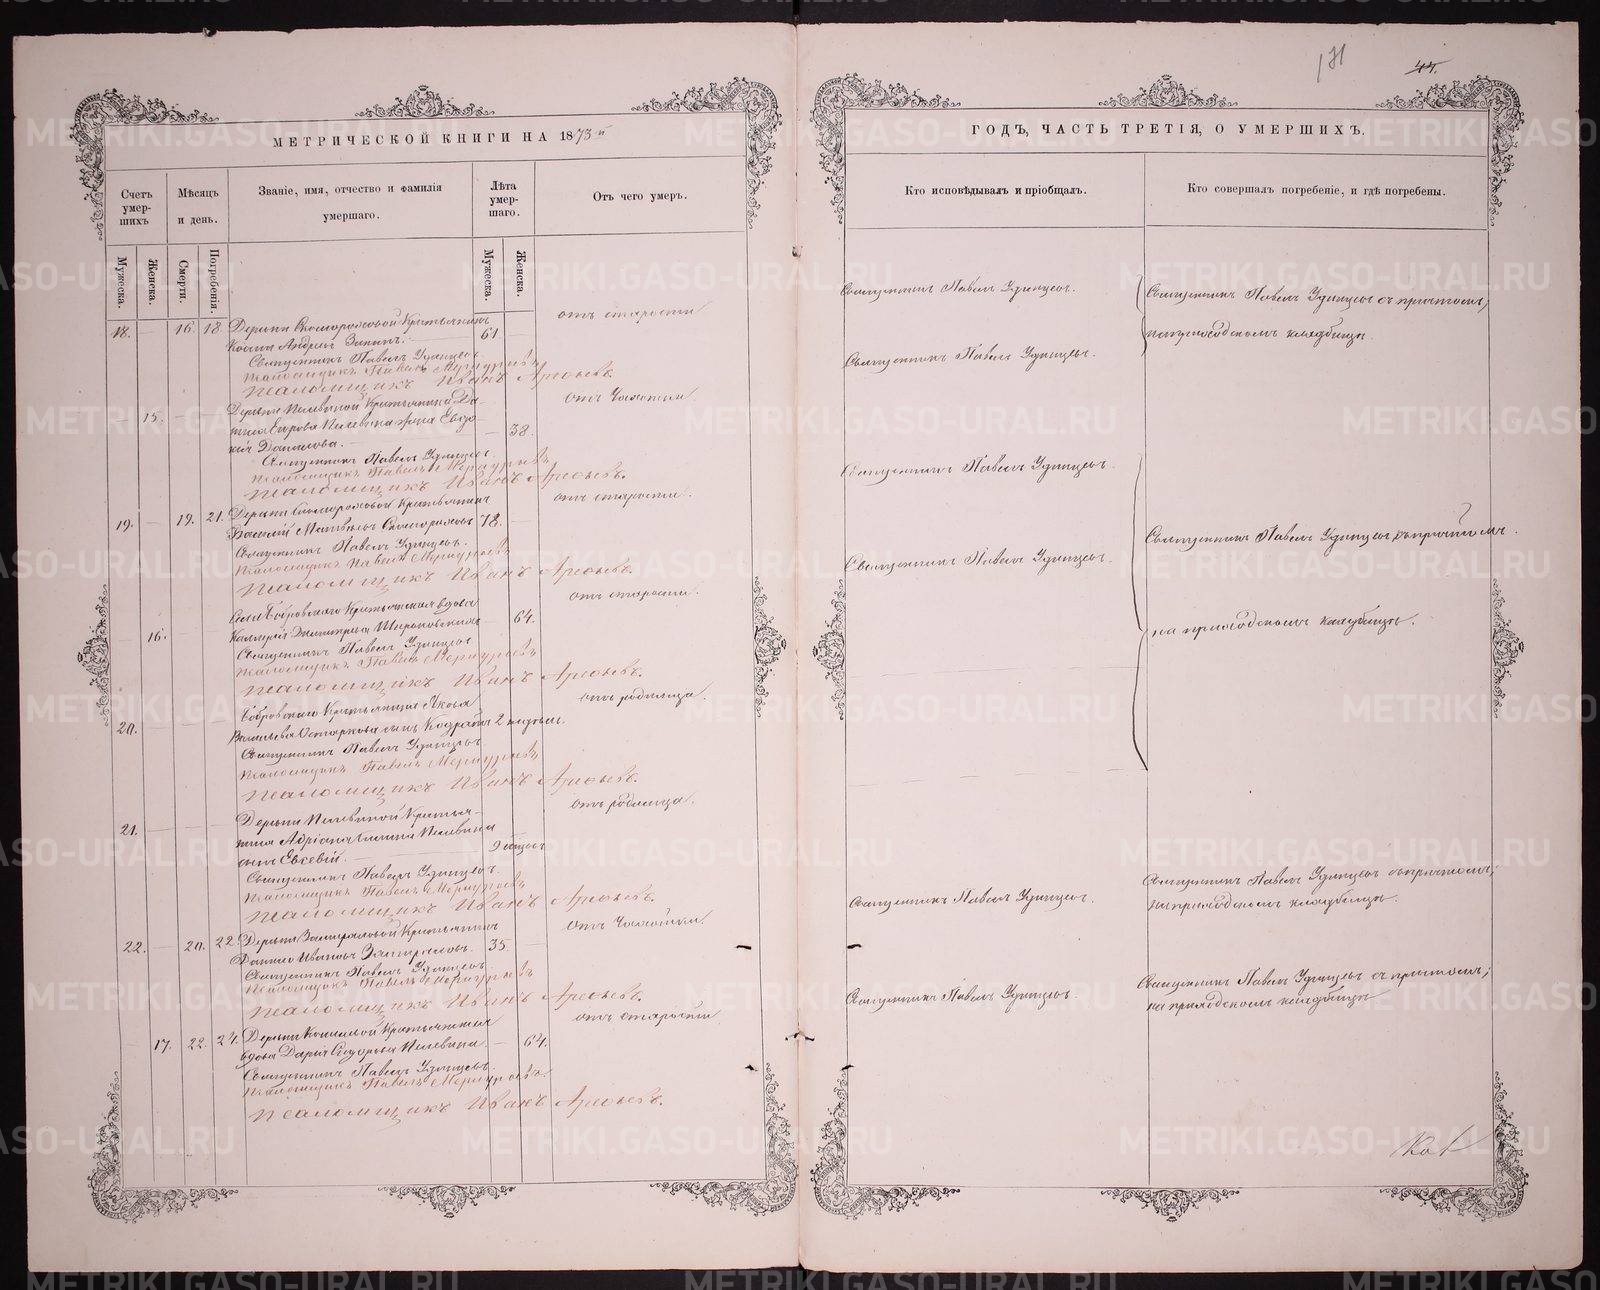 171
44.
МЕТРИЧЕСКОЙ КНИГИ НА 1873-й
ГОДЪ, ЧАСТЬ ТРЕТІЯ, О УМЕРШИХЪ.
Счетъ умершихъ
Мѣсяцъ и день.
Званіе, имя, отчество и фамилія умершаго.
Лѣта умершаго.
Отъ чего умеръ.
Кто исповѣдывалъ и пріобщалъ.
Кто совершалъ погребеніе, и гдѣ погребены.
Мужеска.
Женска.
Смерти.
Погребенія.
Мужеска.
Женска.
18. — 16. 18. Деревни Скоморохової Крестьянинъ 61 — отъ старости
Андреевъ
Священникъ Павелъ Удинцевъ
Псаломщикъ Павелъ Меркурьевъ
Псаломщикъ Иванъ Арефьевъ.
— 15. — — Деревни Пелевиной Крестьянина Да-
Егорова Пелевина жена Евдо- — 38. отъ Чахотки
кія Данилова.
Священникъ Павелъ Удинцевъ
Псаломщикъ Павелъ Меркурьевъ
Псаломщикъ Иванъ Арефьевъ.
19. — 19. 21. Деревни Скомороховой Крестьянинъ отъ старости.
Василій Матвѣевъ Скомороховъ 78. —
Священникъ Павелъ Удинцевъ.
Псаломщикъ Павелъ Меркурьевъ
Псаломщикъ Иванъ Арефьевъ.
— 16. — — Села Бобровскаго Крестьянская вдова отъ старости.
Димитріева — 64.
Священникъ Павелъ Удинцевъ
Псаломщикъ Павелъ Меркурьевъ
Псаломщикъ Иванъ Арефьевъ.
20. — — — Бобровскаго Крестьянина Якова отъ родимца.
Васильева сынъ Кодратъ 2 недѣль.
Священникъ Павелъ Удинцевъ
Псаломщикъ Павелъ Меркурьевъ
Псаломщикъ Иванъ Арефьевъ.
21. — — — Деревни Пелевиной Крестья- отъ родимца.
нина Адріана Пелевина
сынъ Евсевій. 9 мѣсяц.
Священникъ Павелъ Удинцевъ.
Псаломщикъ Павелъ Меркурьевъ
Псаломщикъ Иванъ Арефьевъ.
22. — 20. 22. Деревни Крестьянинъ отъ Чахотки
Данило Ивановъ 35. —
Священникъ Павелъ Удинцевъ
Псаломщикъ Павелъ Меркурьевъ
Псаломщикъ Иванъ Арефьевъ.
— 17. 22. 24. Деревни Крестьянская отъ старости
вдова Дарія Сидорова Пелевина. — 64.
Священникъ Павелъ Удинцевъ.
Псаломщикъ Павелъ Меркурьевъ.
Псаломщикъ Иванъ Арефьевъ.
Священникъ Павелъ Удинцевъ.
Священникъ Павелъ Удинцевъ съ причтомъ,
на приходскомъ кладбищѣ.
Священникъ Павелъ Удинцевъ.
Священникъ Павелъ Удинцевъ.
Священникъ Павелъ Удинцевъ съ причтомъ.
Священникъ Павелъ Удинцевъ.
на приходскомъ кладбищѣ.
Священникъ Павелъ Удинцевъ.
Священникъ Павелъ Удинцевъ съ причтомъ,
на приходскомъ кладбищѣ.
Священникъ Павелъ Удинцевъ.
Священникъ Павелъ Удинцевъ съ причтомъ,
на приходскомъ кладбищѣ
METRIKI.GASO-URAL.RU